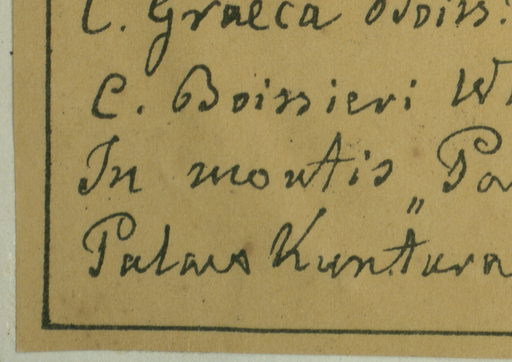 C. Graeca Boiss.
C. Boissieri
In montis „Pa
Palaeo Kuntura